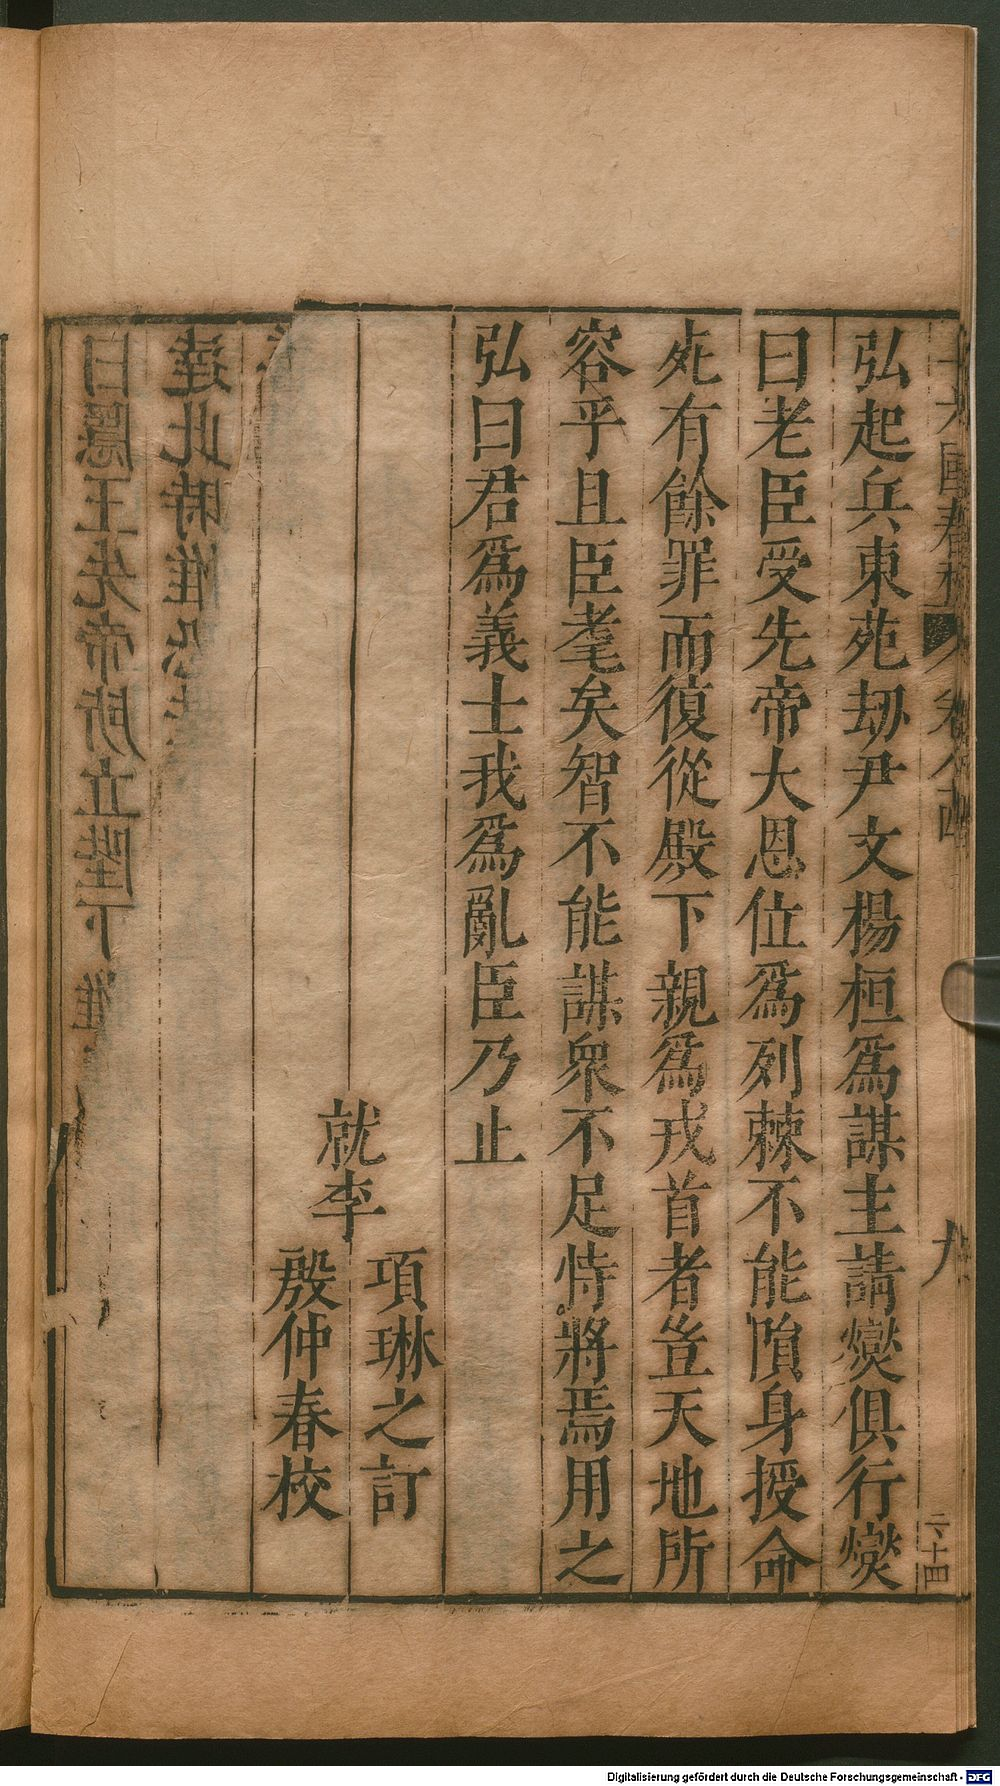 弘起兵東苑刼尹文楊桓爲謀主請爕俱行爕
曰老臣受先帝大恩位爲列棘不能隕身授命
死有餘罪而復從殿下親爲戎首者豈天地所
容乎且臣耄矣智不能謀衆不足恃將焉用之
弘曰君爲義士我爲亂臣乃止
就李
項琳之訂
殷仲春校
九
二十四
曰隱王先帝所立陛下惟
達此時惟恐
Digitalisierung gefördert durch die Deutsche Forschungsgemeinschaft - DFG